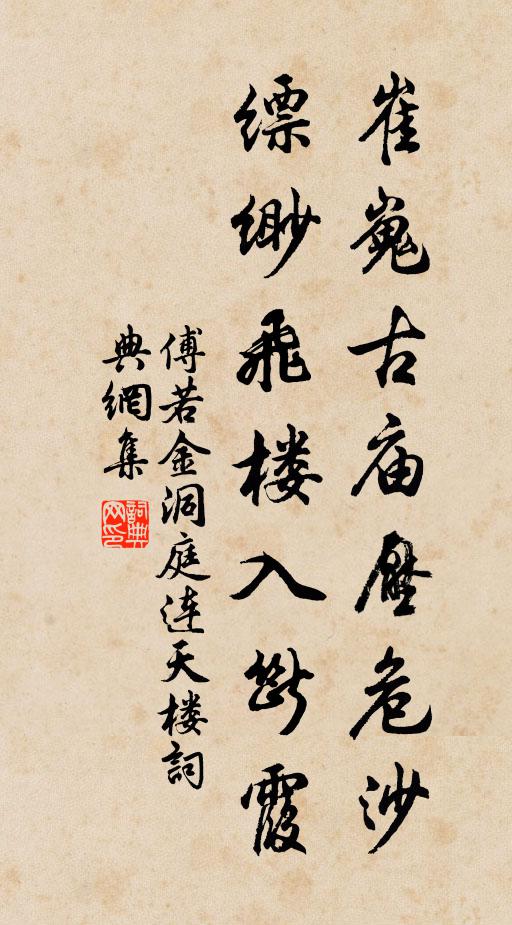 崔嵬古庙壓危沙
缥缈飛楼入断霞
傅若金洞庭连天楼詞
典網集
詞典网印